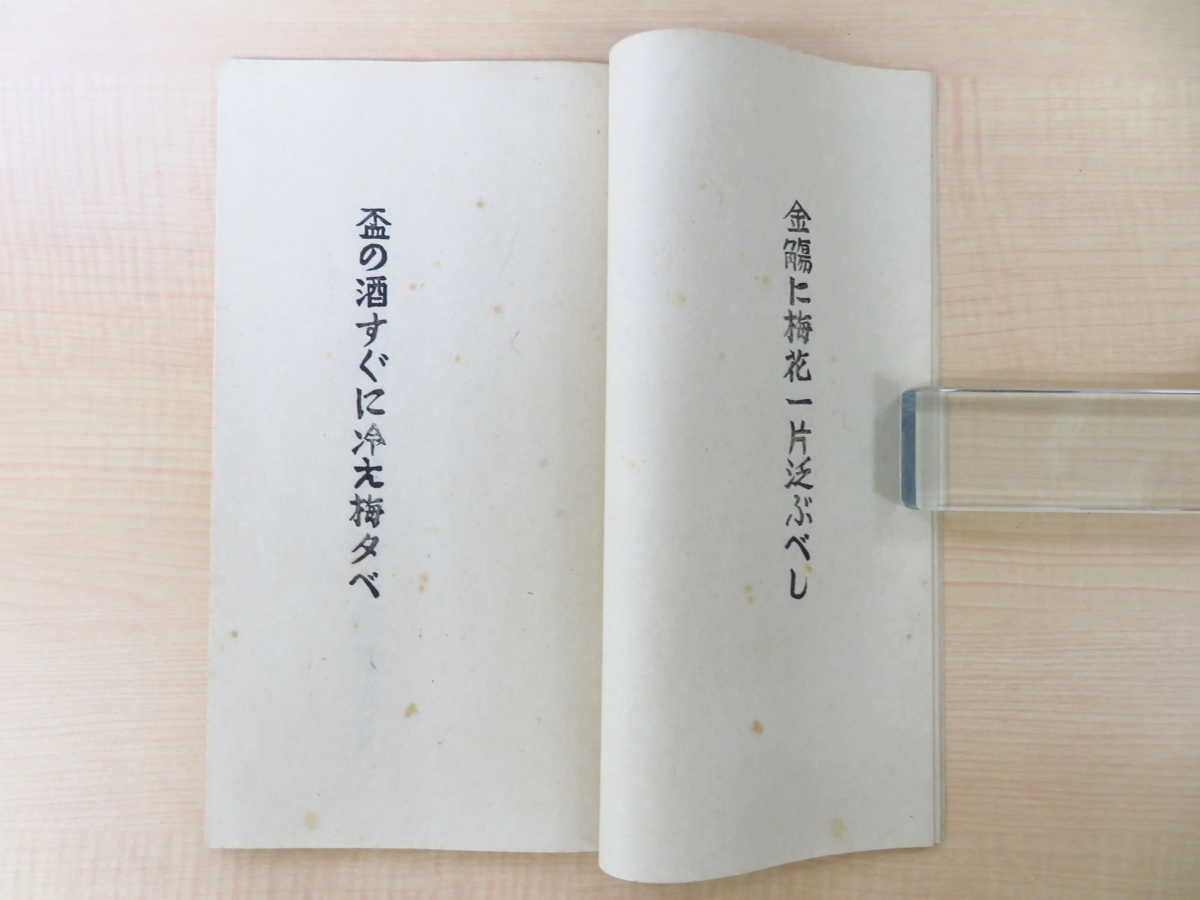 金觴に梅花一片泛ぶべし
盃の酒すぐに冷え梅夕べ